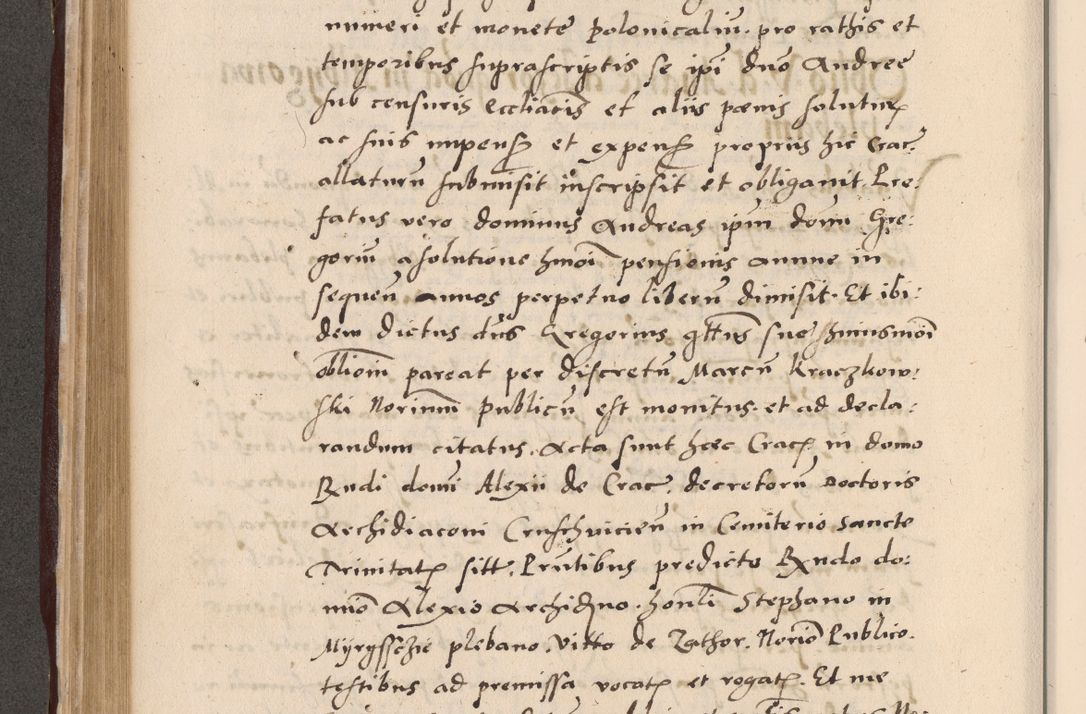 numeri et monete polonicaliu. pro rathis et
temporibus suprascriptis se ipi dno Andree
sub censuris Eccliacis et aliis pœnis soluturꝫ
ac suis impensꝫ et expensꝫ propriis hic Crac:
allaturu submisit inscripsit et obligavit. Pre:
fatus vero dominus Andreas ipm domi Gre:
goriu a solutione hmoi pensionis annue in
sequen annos perpetuo liberu dimisit. Et ibi:
dem dictus dns Gregorius qttus sue huiusmoi
obliom pareat per discretu Marcu Kraczkow:
ski Norium publicu est monitus. et ad decla:
randum citatus. Acta sunt hæc Cracꝫ in domo
Rndi domi Alexii de Crac. decretoru Doctoris
Archidiaconi Cruschvicien in Cemiterio sancte
Trinitatꝫ sitt. Prntibus predicto Rndo do:
mino Alexio Archidno. honli Stephano in
Myrgsschie plebano. Vitto de Zathor. Norio Publico.
testibus ad premissa vocatꝫ et rogatꝫ. Et me